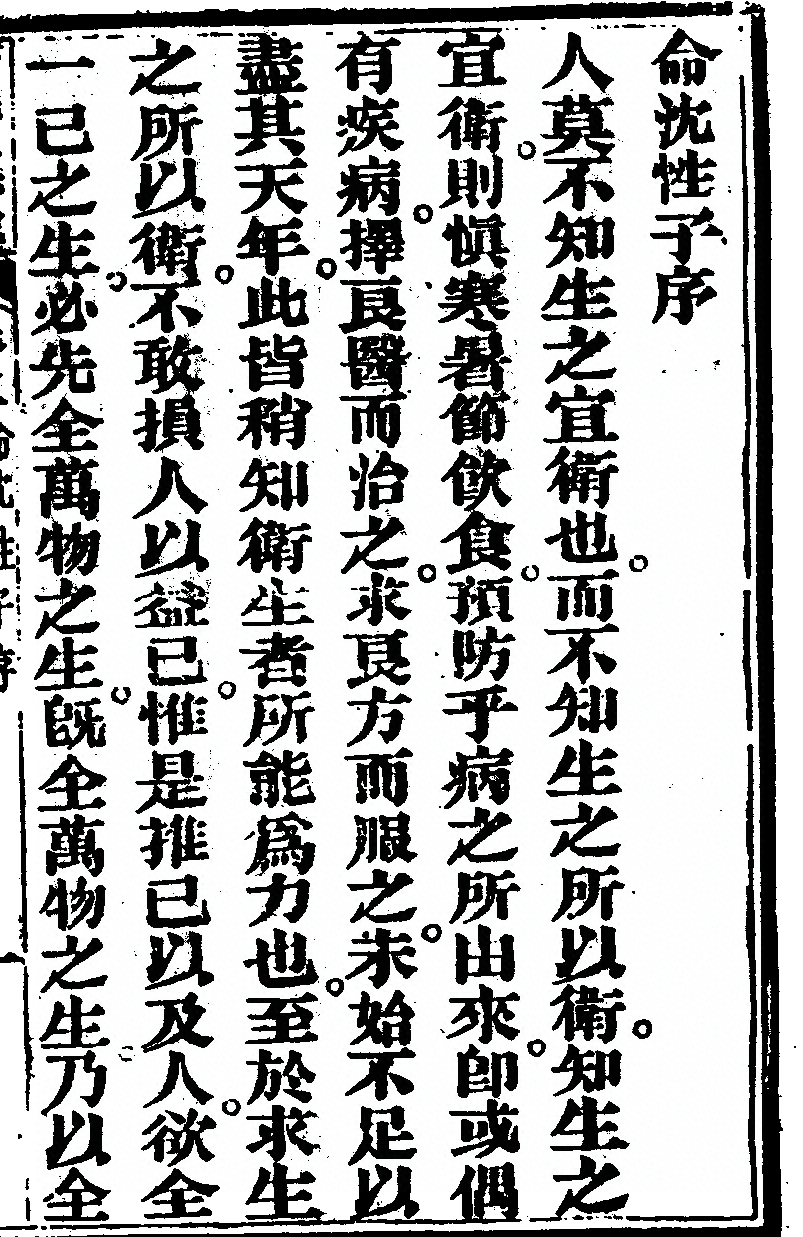 命沈性子序
人莫不知生之宜衛也而不知生之所以衛知生之
宜衛則愼寒暑節飮食預防乎病之所由來卽或偶
有疾病擇良醫而治之求良方而服之未始不足以
盡其天年此皆稍知衛生者所能爲力也至於求生
之所以衛不敢損人以益己惟是推己以及人欲全
一己之生必先全萬物之生旣全萬物之生乃以全